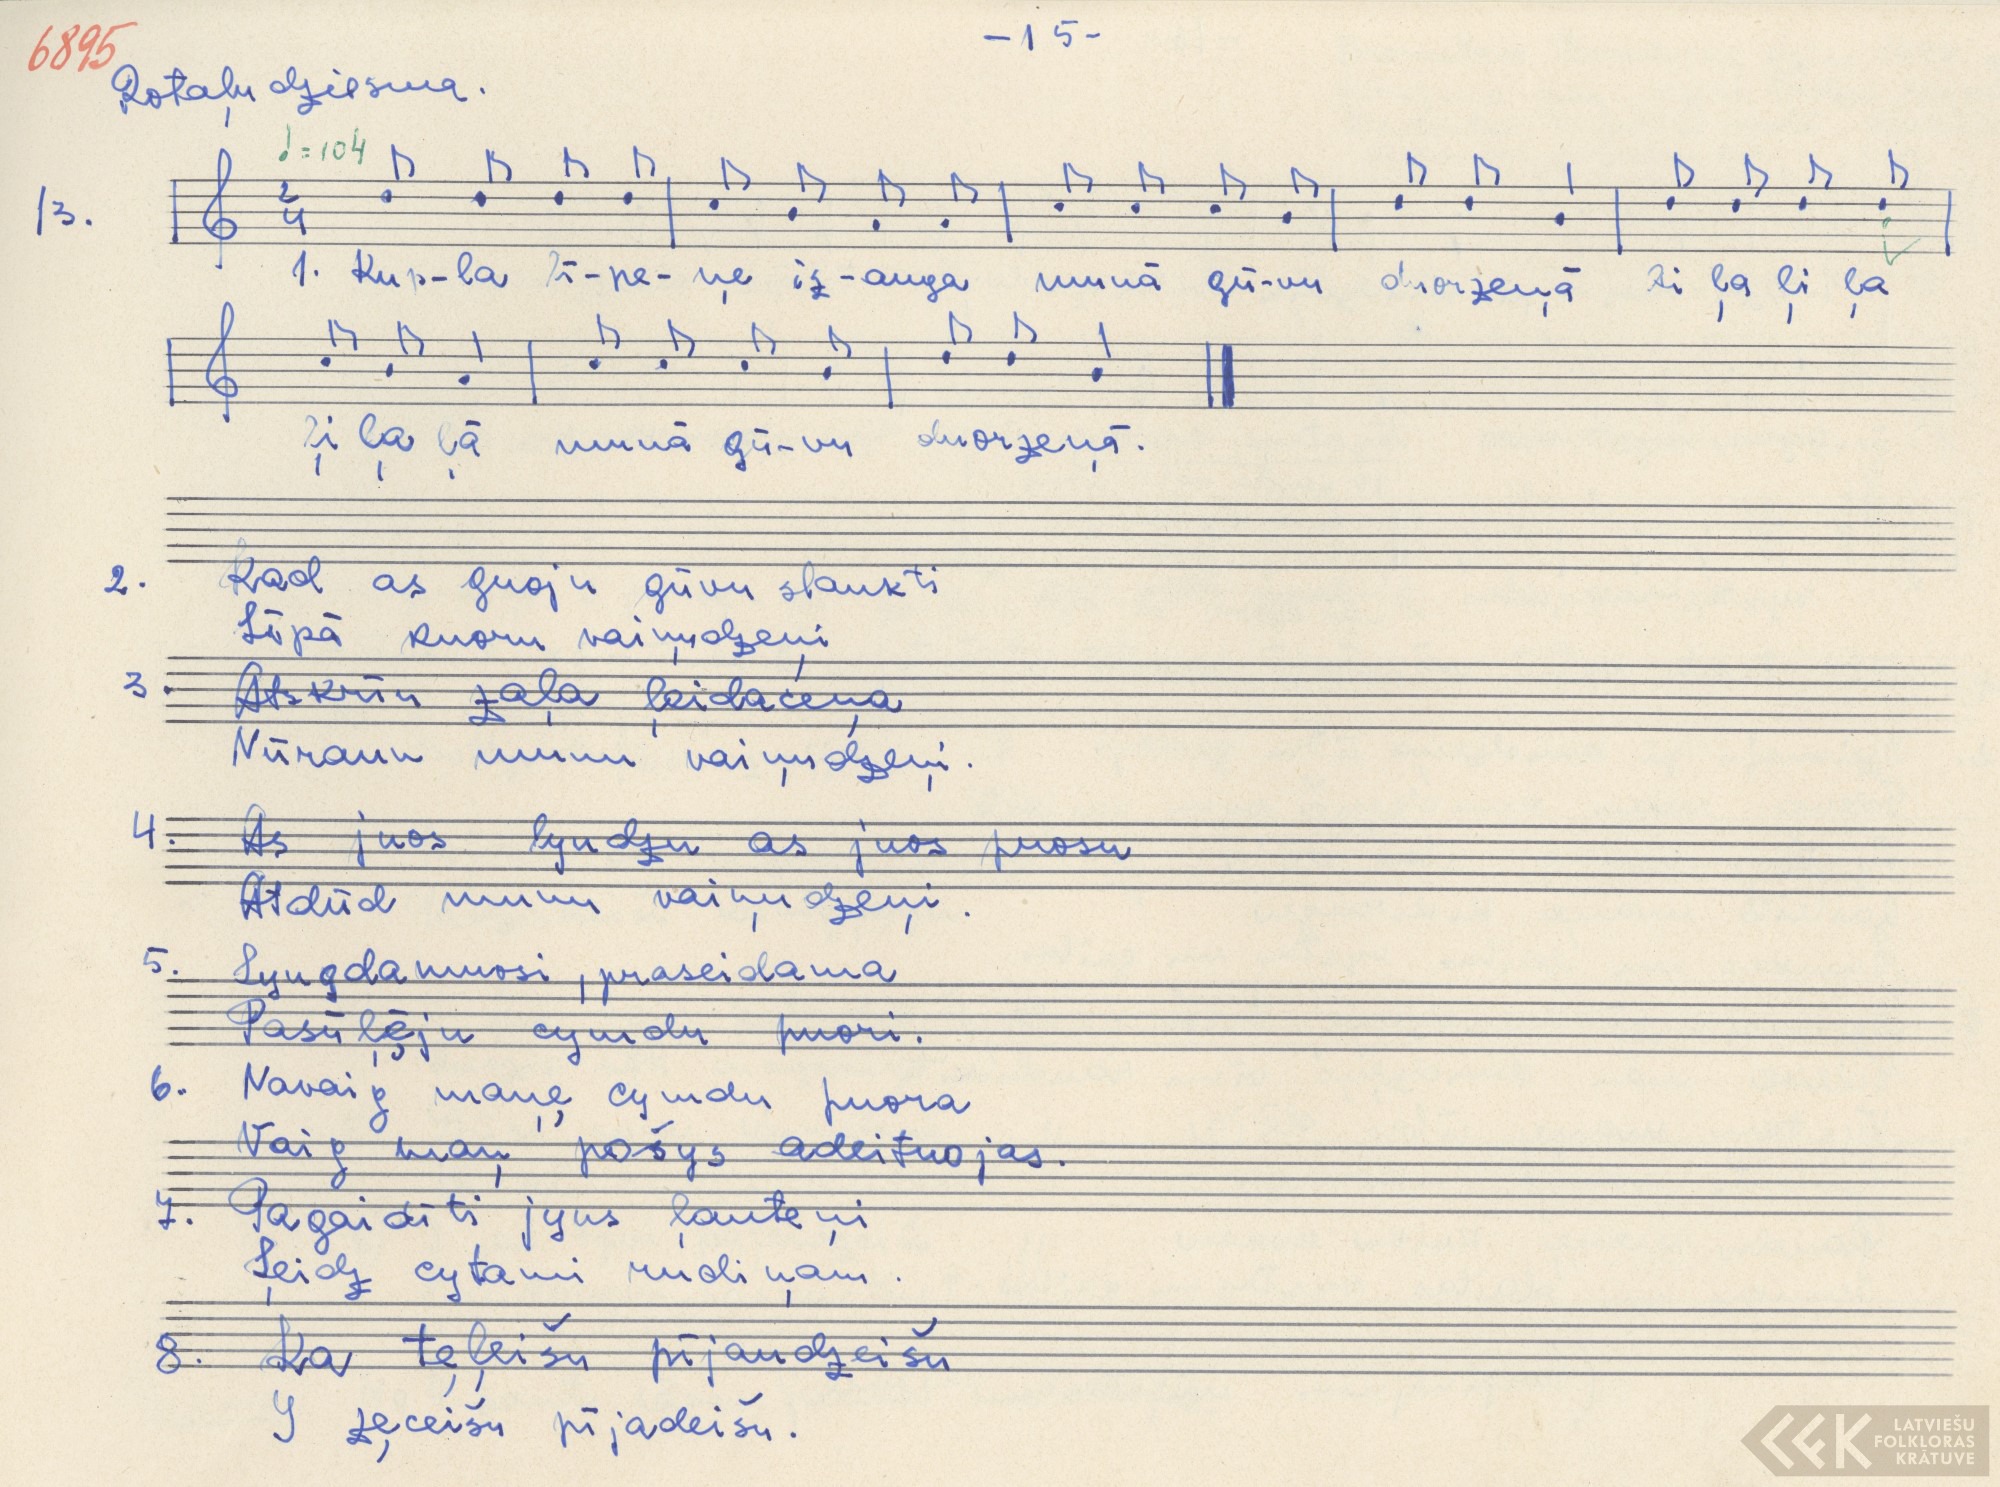 6895
-15-
Rotaļu dziesma.
♩=104
13.
2
4
1. Kup-la lī-pe-ņe iz-auga munā gū-vu duorzeņā ļi ļa ļi ļa
ļi ļa ļā munā gū-vu duorzeņā.
2. Kad as guoju gūvu slaukti
Lūpā kuoru vaiņudzeņi
3. Atskrūn zaļa ļeidaceņa
Nūraun munu vaiņudzeņi.
4. As juos lyudzu as juos prosu
Atdūd munu vaiņudzeņi.
5. Lyugdamuosi, praseidama
Pasūļēju cymdu puori.
6. Navaig maņe cymdu puora
Vaig maņ pošys adeituojas.
7. Pagaidīti jyus ļauteņi
Ļeidz cytami rudiņam.
8. Ka teļeišu pījaudzeišu
I zeceišu pījadeišu.
LATVIEŠU
FOLKLORAS
KRĀTUVE